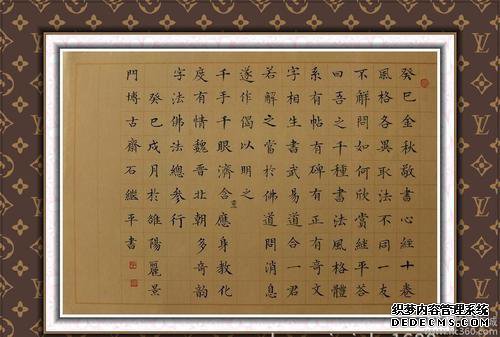 癸巳金秋敬書心經十卷
風格各異取法不同一友
不解問如何欣賞繼平答
曰吾之千種書法風格體
系有帖有碑有正有奇文
字相生書武易道合一君
若解之當於佛道問消息
遂作偈以明之
千手千眼濟含應身教化
度有情魏晉北朝多奇韻
字法佛法總參行
癸巳戌月於雒陽麗景
門博古齋石繼平書
织梦内容管理系统
DEDECMS.COM